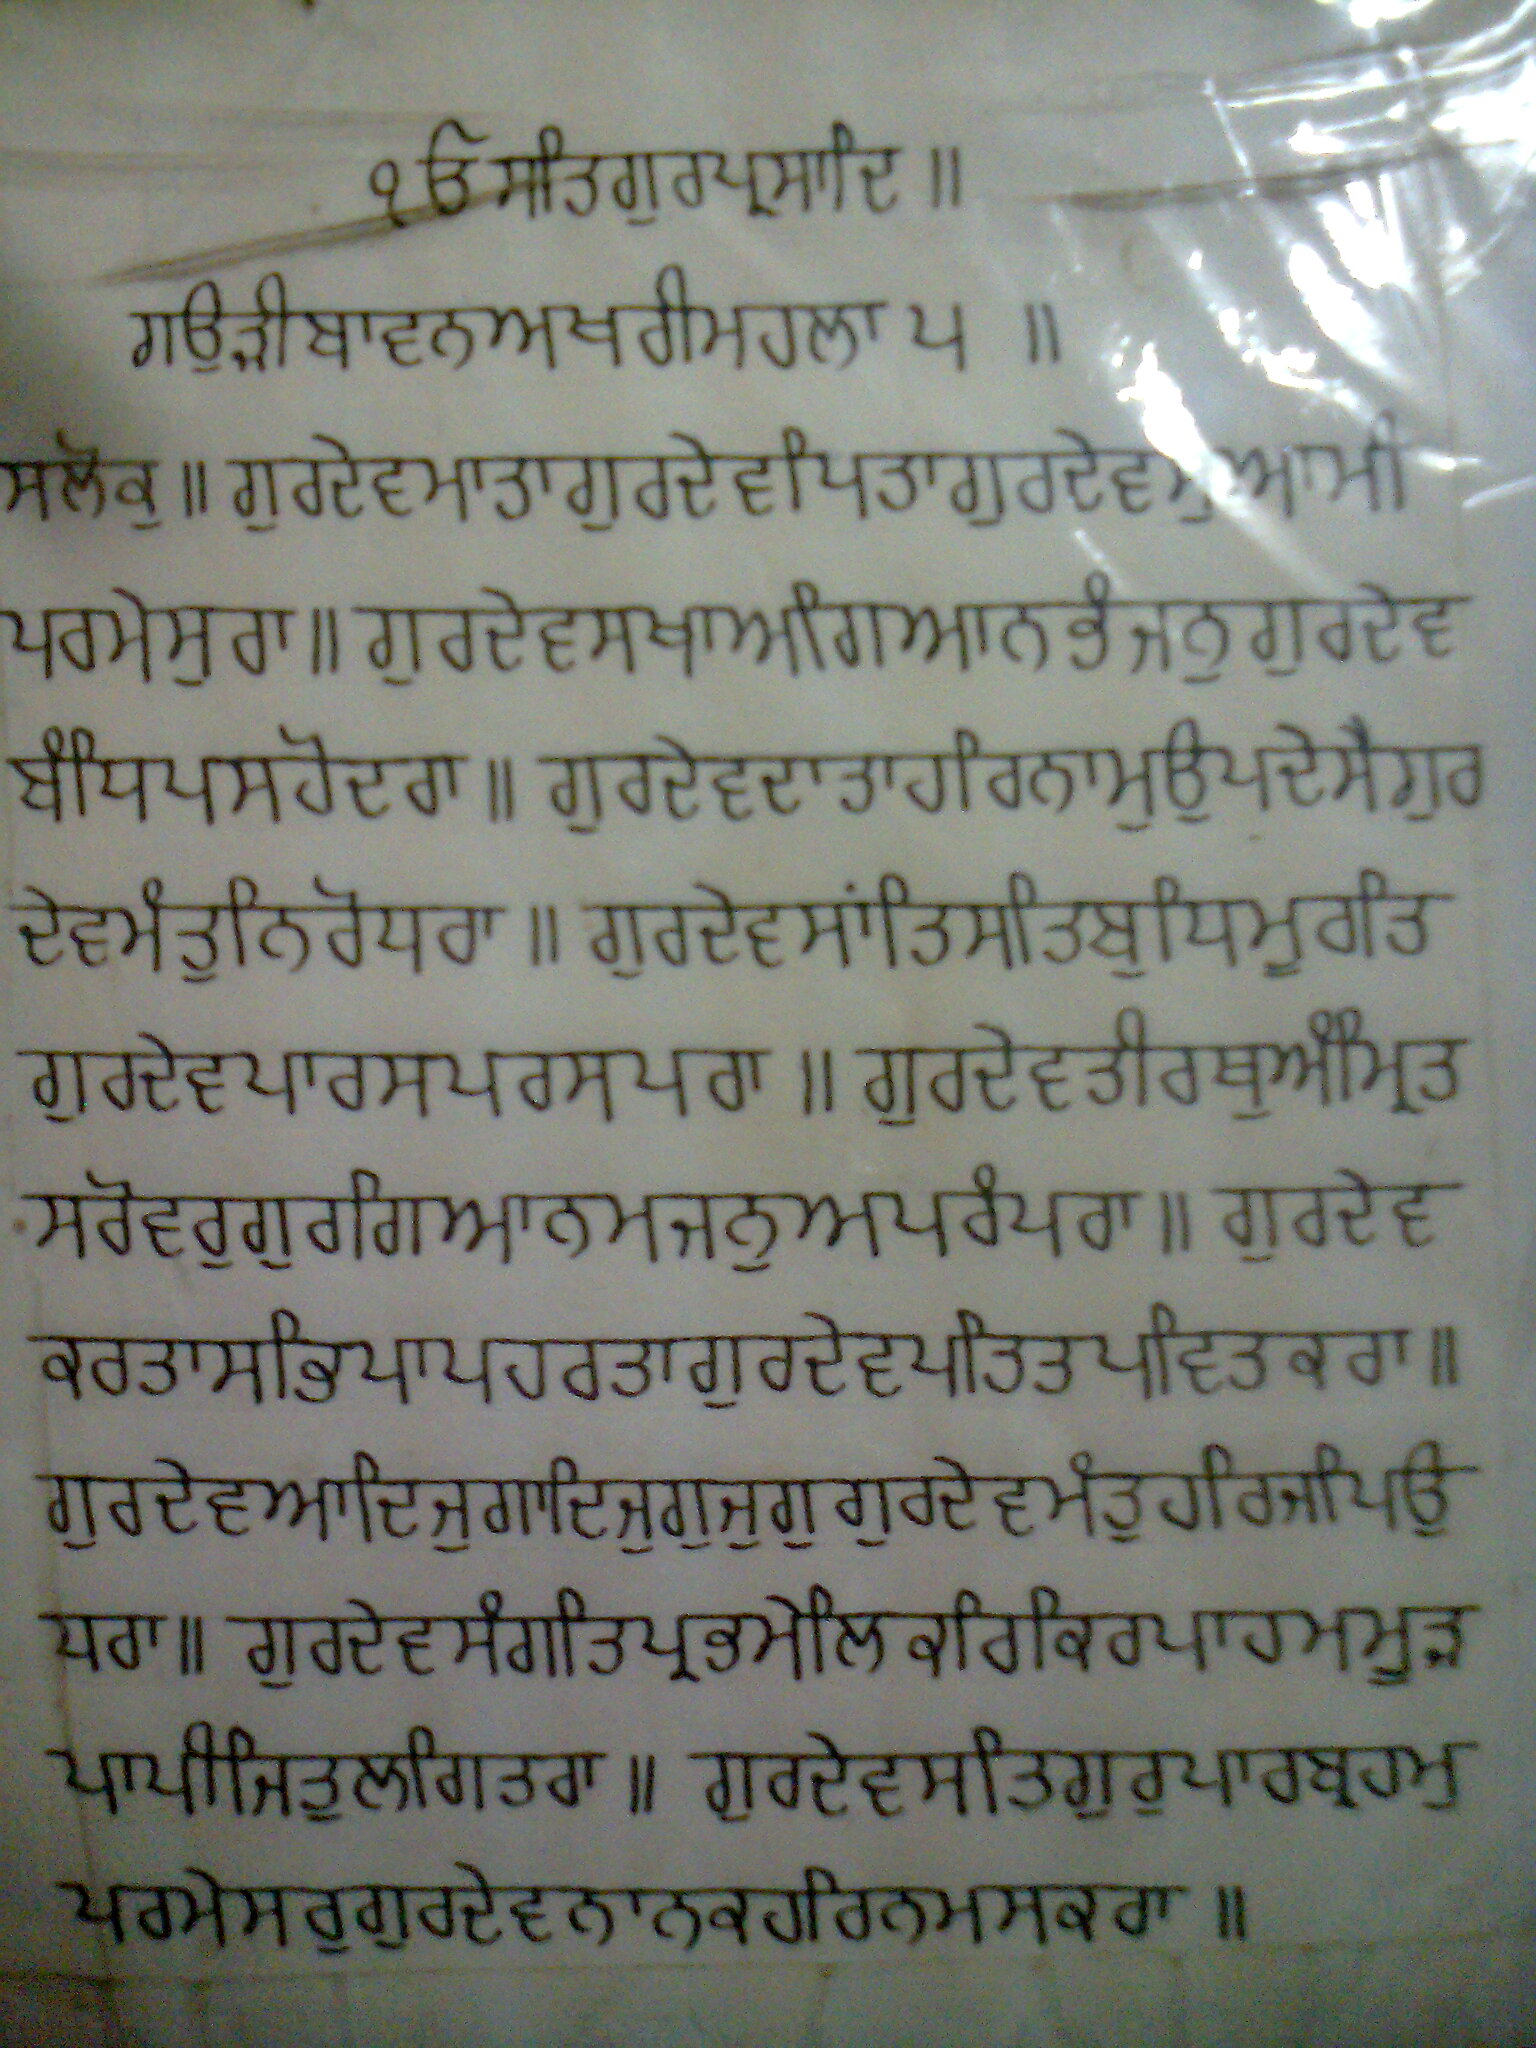 ੴ ਸਤਿਗੁਰਪ੍ਰਸਾਦਿ ॥
ਗਉੜੀਬਾਵਨਅਖਰੀਮਹਲਾ ੫ ॥
ਸਲੋਕੁ॥ ਗੁਰਦੇਵਮਾਤਾਗੁਰਦੇਵਪਿਤਾਗੁਰਦੇਵਸੁਆਮੀ
ਪਰਮੇਸੁਰਾ॥ ਗੁਰਦੇਵਸਖਾਅਗਿਆਨਭੰਜਨੁਗੁਰਦੇਵ
ਬੰਧਿਪਸਹੋਦਰਾ॥ ਗੁਰਦੇਵਦਾਤਾਹਰਿਨਾਮੁਉਪਦੇਸੈਗੁਰ
ਦੇਵਮੰਤੁਨਿਰੋਧਰਾ॥ ਗੁਰਦੇਵਸਾਂਤਿਸਤਿਬੁਧਿਮੂਰਤਿ
ਗੁਰਦੇਵਪਾਰਸਪਰਸਪਰਾ॥ ਗੁਰਦੇਵਤੀਰਥੁਅੰਮ੍ਰਿਤ
ਸਰੋਵਰੁਗੁਰਗਿਆਨਮਜਨੁਅਪਰੰਪਰਾ॥ ਗੁਰਦੇਵ
ਕਰਤਾਸਭਿਪਾਪਹਰਤਾਗੁਰਦੇਵਪਤਿਤਪਵਿਤਕਰਾ॥
ਗੁਰਦੇਵਆਦਿਜੁਗਾਦਿਜੁਗੁਜੁਗੁਗੁਰਦੇਵਮੰਤੁਹਰਿਜਪਿਉ
ਧਰਾ॥ ਗੁਰਦੇਵਸੰਗਤਿਪ੍ਰਭਮੇਲਿਕਰਿਕਿਰਪਾਹਮਮੂੜ
ਪਾਪੀਜਿਤੁਲਗਿਤਰਾ॥ ਗੁਰਦੇਵਸਤਿਗੁਰੁਪਾਰਬ੍ਰਹਮੁ
ਪਰਮੇਸਰੁਗੁਰਦੇਵਨਾਨਕਹਰਿਨਮਸਕਰਾ॥